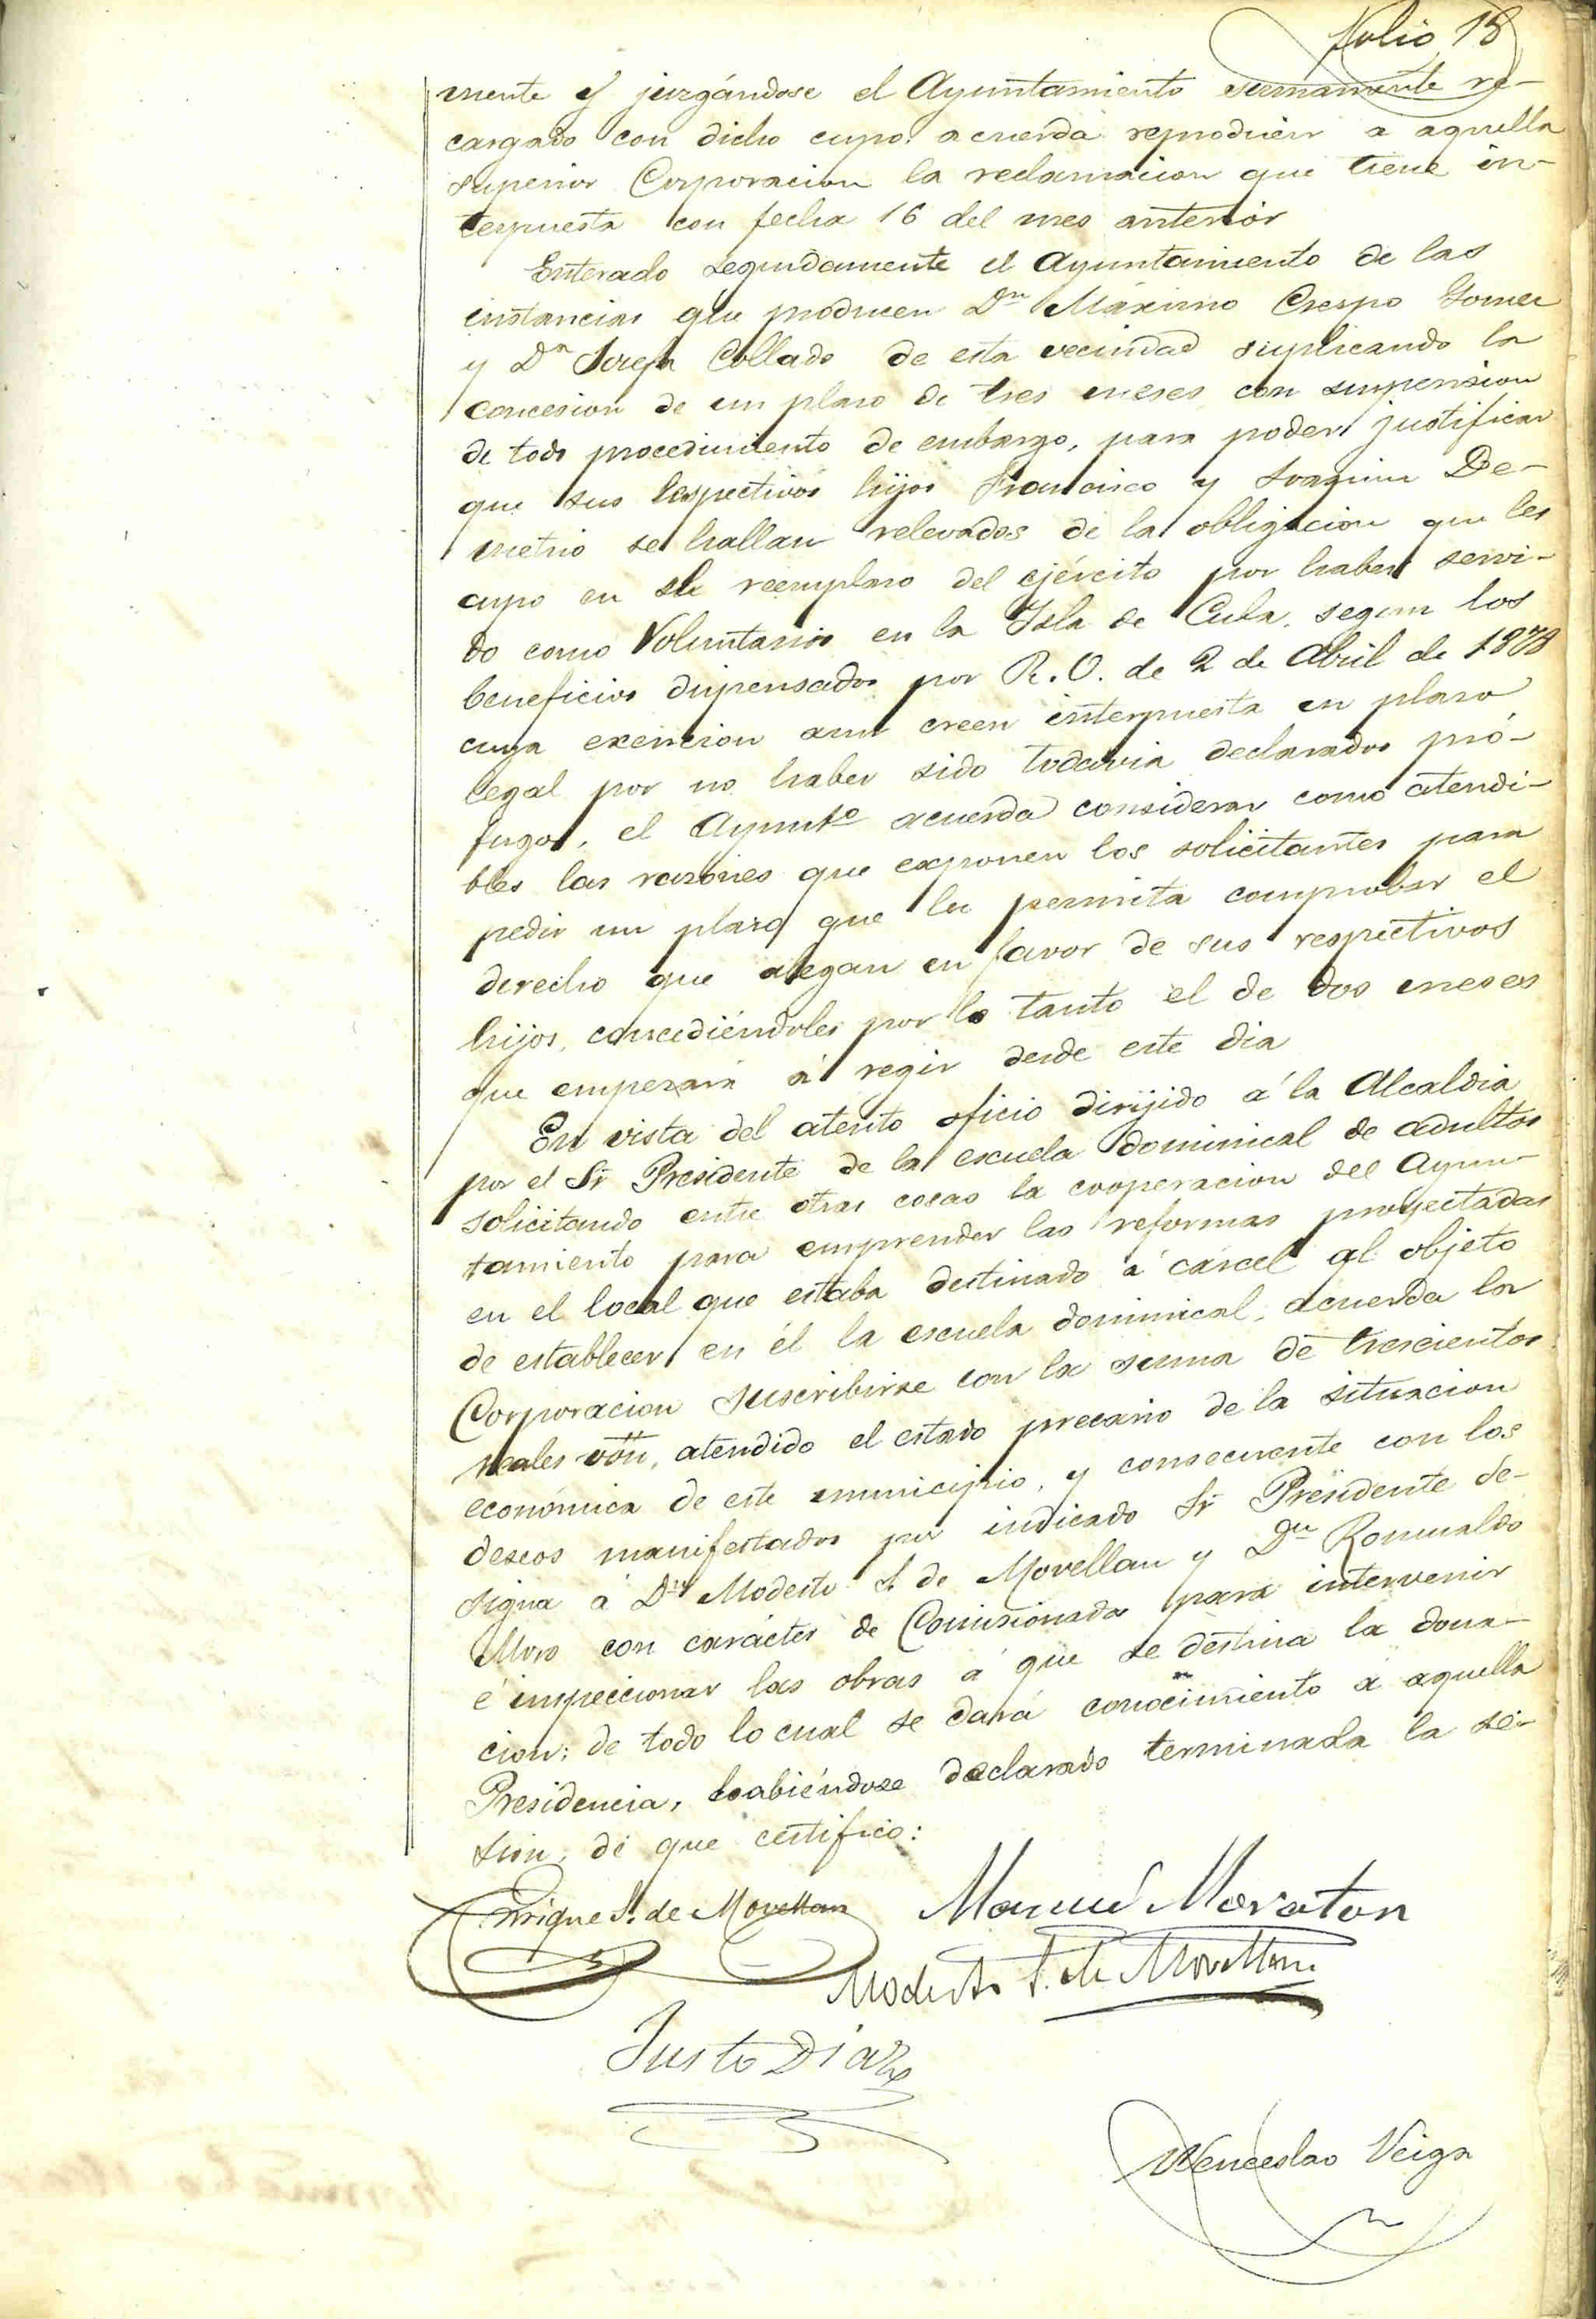 Folio 18
mente y juzgándose el Ayuntamiento sumamente re-
cargado con dicho cupo: acuerda reproducir a aquella
superior Corporacion la reclamacion que tiene in-
terpuesta con fecha 16 del mes anterior
Enterado seguidamente el Ayuntamiento de las
instancias que producen Dn Máximo Crespo Gomez
y Dª Josefa Collado de esta vecindad suplicando la
concesion de un plazo de tres meses con suspension
de todo procedimiento de embargo, para poder justificar
que sus respectivos hijos Francisco y Joaquin De-
metrio se hallan relevados de la obligacion que les
cupo en el reemplazo del ejército por haber servi-
do como Voluntarios en la Isla de Cuba, segun los
beneficios dispensados por R.O. de 2 de Abril de 1878
cuya exencion aun creen interpuesta en plazo
legal por no haber sido todavia declarados pró-
fugos, el Ayuntº acuerda considerar como atendi-
bles las razones que exponen los solicitantes para
pedir un plazo que les permita comprobar el
derecho que alegan en favor de sus respectivos
hijos, concediéndoles por lo tanto el de dos meses
que empezará á regir desde este dia
En vista del atento oficio dirijido á la Alcaldia
por el Sr Presidente de la escuela dominical de adultos
solicitando entre otras cosas la cooperacion del Ayun-
tamiento para emprender las reformas proyectadas
en el local que estaba destinado á cárcel al objeto
de establecer en él la escuela dominical, acuerda la
Corporacion suscribirse con la suma de trescientos
reales von, atendido el estado precario de la situacion
económica de este municipio, y consecuente con los
deseos manifestados por indicado Sr Presidente de-
signa á Dn Modesto S. de Movellan y Dn Romualdo
Moro con carácter de Comisionados para intervenir
é inspeccionar las obras á que se destina la dona-
cion; de todo lo cual se dará conocimiento á aquella
Presidencia, habiéndose declarado terminada la se-
sion, de que certifico:
Enrique S. de Movellan Manuel Moraton
Modesto S. de Movellan
Justo Diaz
Wenceslao Veiga